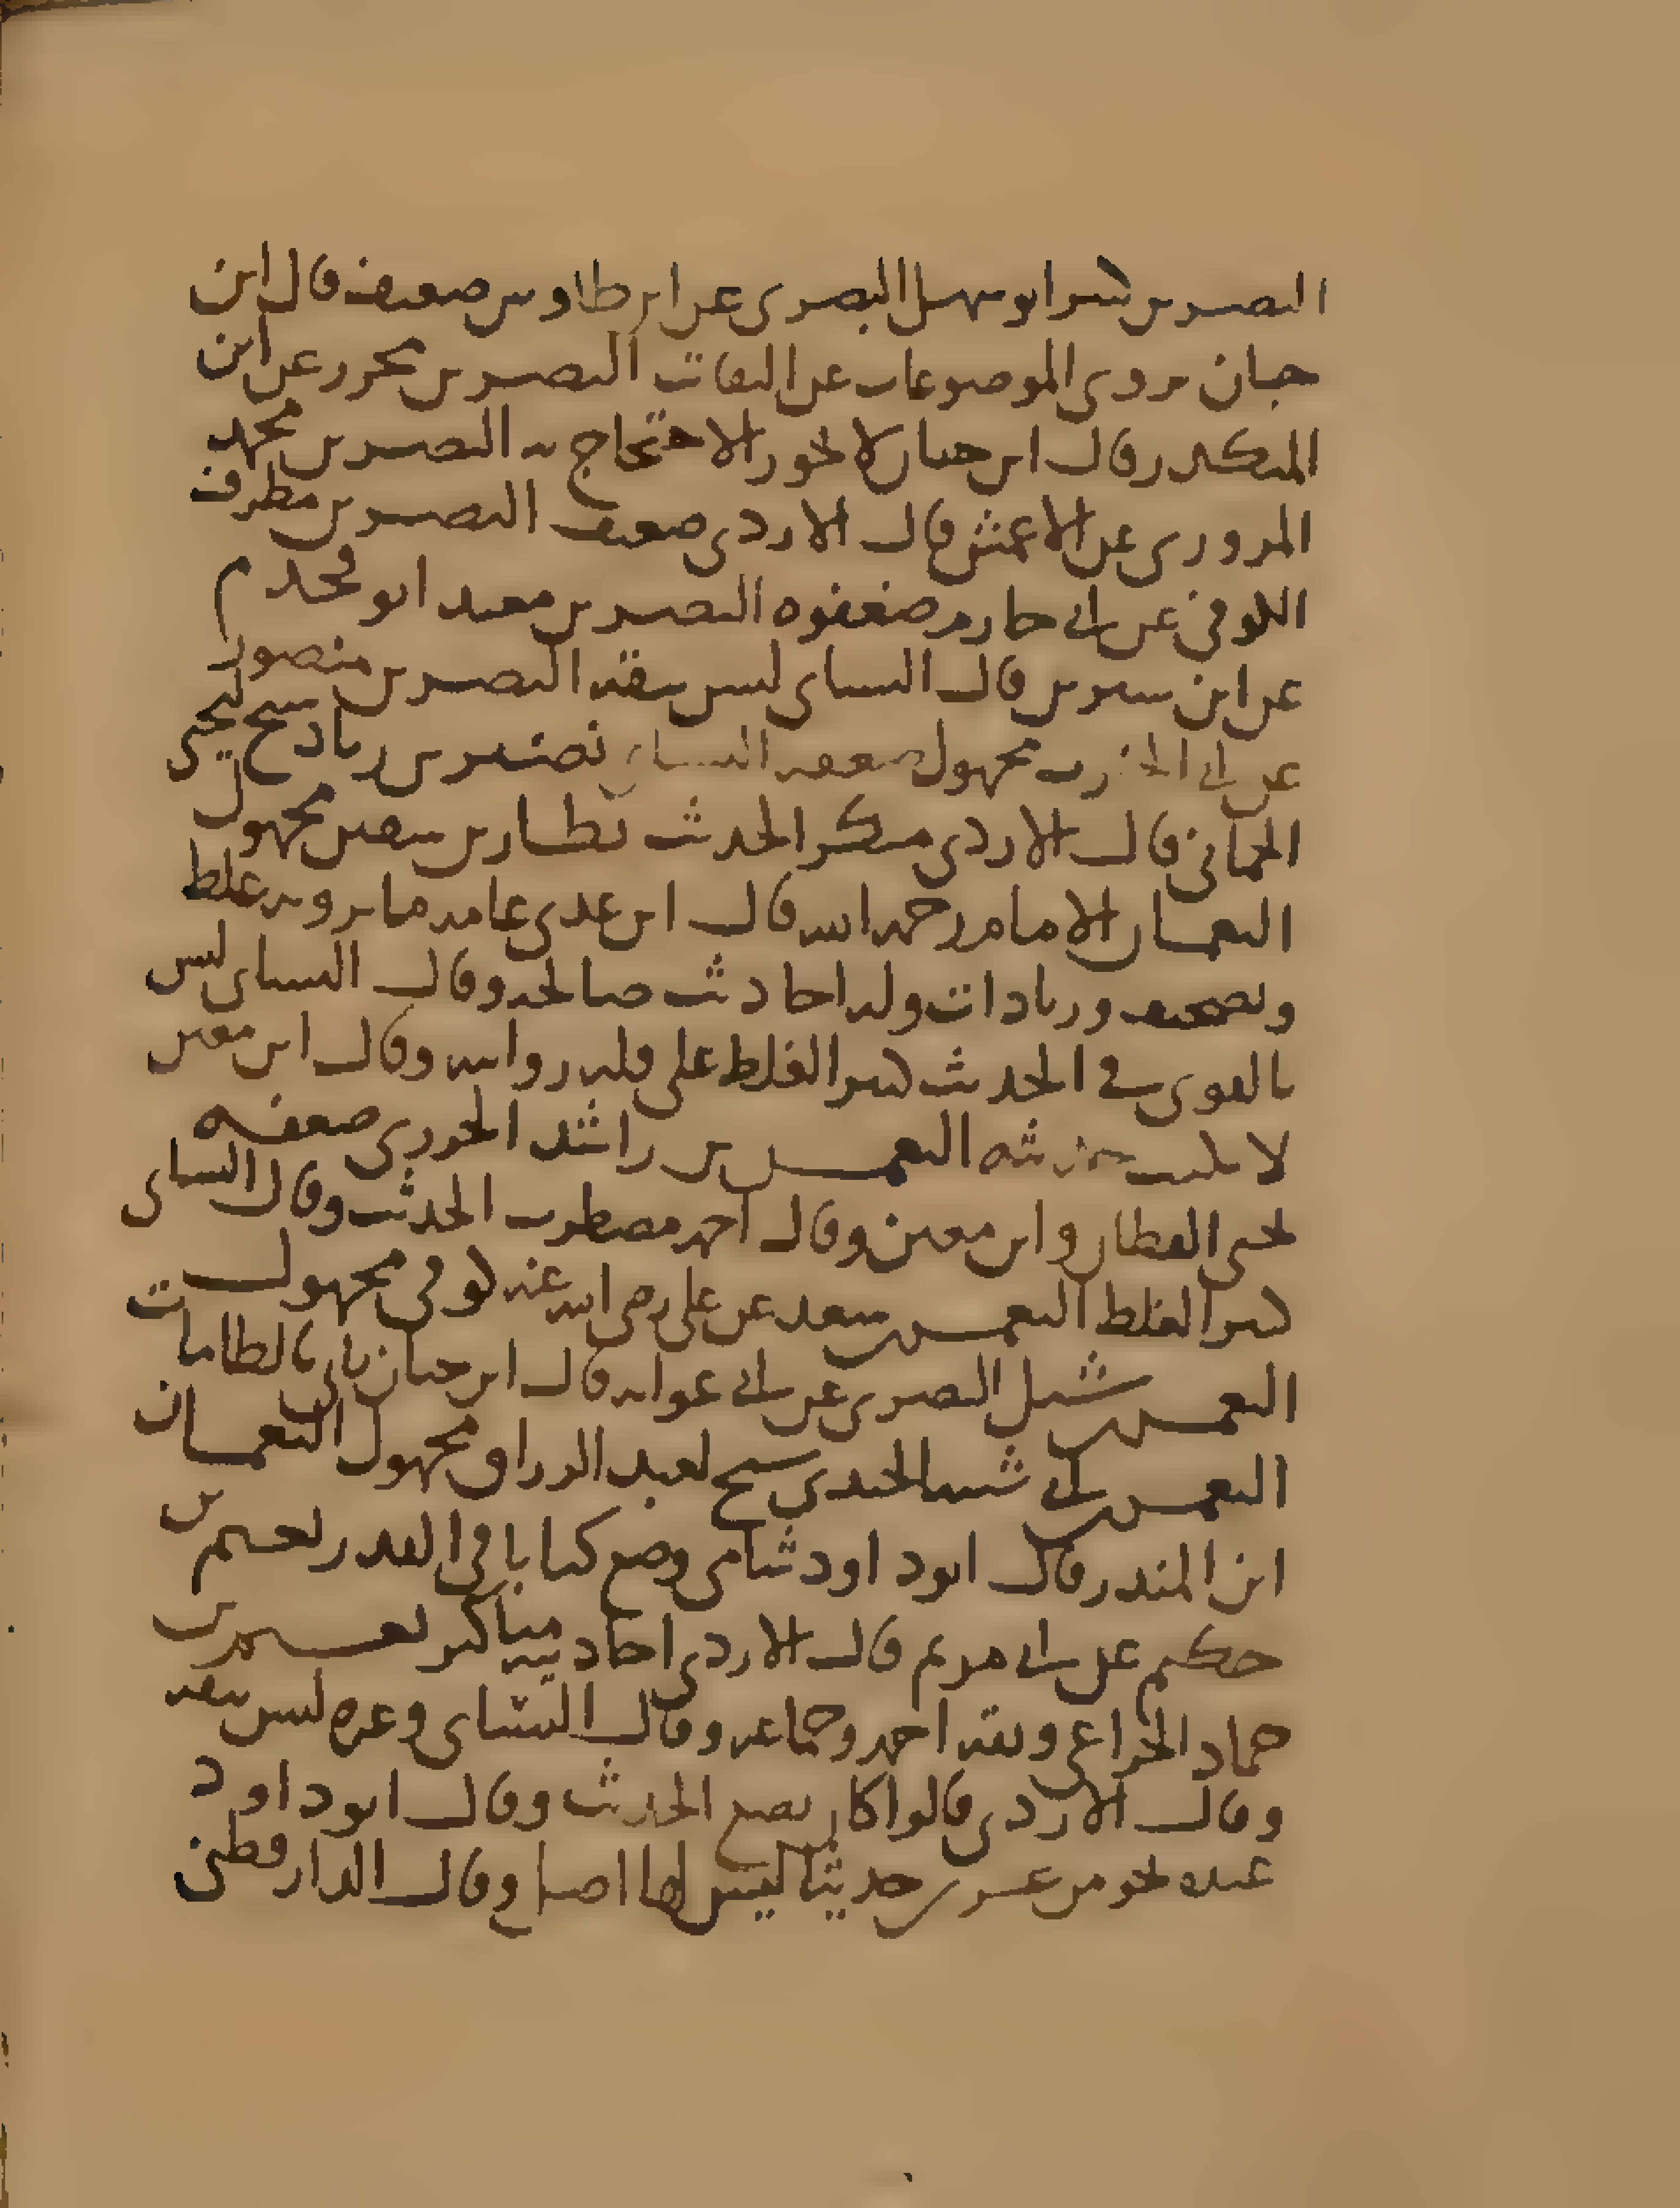 النضر بن كثير ابو سهل البصري عن ابن طاوس ضعيف قال ابن
حبان يروي الموضوعات عن الثقات النضر بن محرر عن ابن
المنكدر قال ابن حبان لا يجوز الاحتجاج به النضر بن محمد
المروزي عن الاعمش قال الازدي ضعيف النضر بن مطرف
الكوفي عن ابي حازم ضعفوه النضر بن معبد ابو قحذم
عن ابن سيرين قال النساي ليس بثقة النضر بن منصور
عن ابي الجنوب مجهول ضعفه النساي نضير بن زياد شيخ ليحيى
الحماني قال الازدي منكر الحديث نظار بن سفين مجهول
النعمان الامام رحمه الله قال ابن عدي عامة ما يرويه غلط
وتصحيف وزيادات وله احاديث صالحة وقال النساي ليس
بالقوي في الحديث كثير الغلط على قلة روايته وقال ابن معين
لا يكتب حديثه النعمن بن راشد الجزري ضعفه
يحيى القطان وابن معين وقال احمد مضطرب الحديث وقال النساي
كثير الغلط النعمن بن سعد عن علي رضي الله عنه كوفي مجهول
النعمن بن شبل البصري عن ابي عوانة قال ابن حبان ياتي بالطامات
النعمن بن ابي شيبة الجندي شيخ لعبد الرزاق مجهول النعمان
ابن المنذر قال ابو داود شامي وضع كتابا في القدر نعيم بن
حكيم عن ابي مريم قال الازدي احاديثه مناكير نعيم بن
حماد الخزاعي وثقه احمد وجماعة وقال النساي وغيره ليس بثقة
وقال الازدي قالوا كان يضع الحديث وقال ابو داود
عنده نحو من عشرين حديثا ليس لها اصل وقال الدارقطني